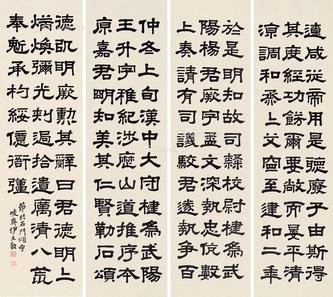 遼咸從帝用是聽廢子由斯得
其度經功飭爾要敞而晏平清
涼調和烝烝艾寧至建和二年
於是明知故司隸校尉楗為武
陽楊君厥字孟文深執忠伉數
上奏請有司議駮君遂執爭百
仲冬上旬漢中大守楗為武陽
王升字稚紀涉歷山道推序本
原嘉君明知美其仁賢勒石頌
德以明厥勳其辭曰君德明明
炳煥彌光刺過拾遺厲清八荒
奉魁承杓綏億衙彊
節臨石門頌
峻齋伊立勳